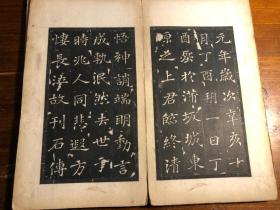 元年歲次辛亥十
月丁酉朔一日丁
酉葬於蒲坂城東
原之上君臨終清
悟神誚端明動言
成軌泯然去世于
時兆人同悲遐方
悽長泣故刊石傳